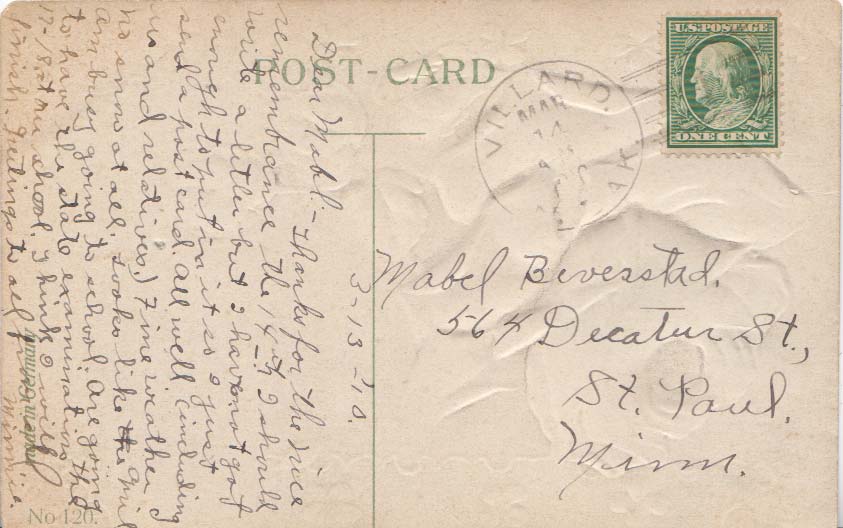 POST-CARD
U.S. POSTAGE
ONE CENT
VILLARD,
MAR
14
3-13-10.
Dear Mabel:- Thanks for the nice
remembrance the 14th I should
write a letter but I have not got
enough to put in it so I just
send a post card. All well (including
us and relatives.) Fine weather
no snow at all. Looks like the
am busy going to school. Are going
to have the state examinations the
17-18 at the school. I think I will
finish. Greetings to all from
Minnie.
Mabel Beverstad.
564 Decatur St.,
St. Paul.
Minn.
No 120.